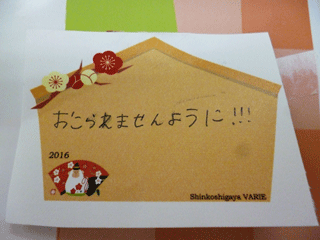 おこられませんように!!!
2016
Shinkoshigaya VARIE